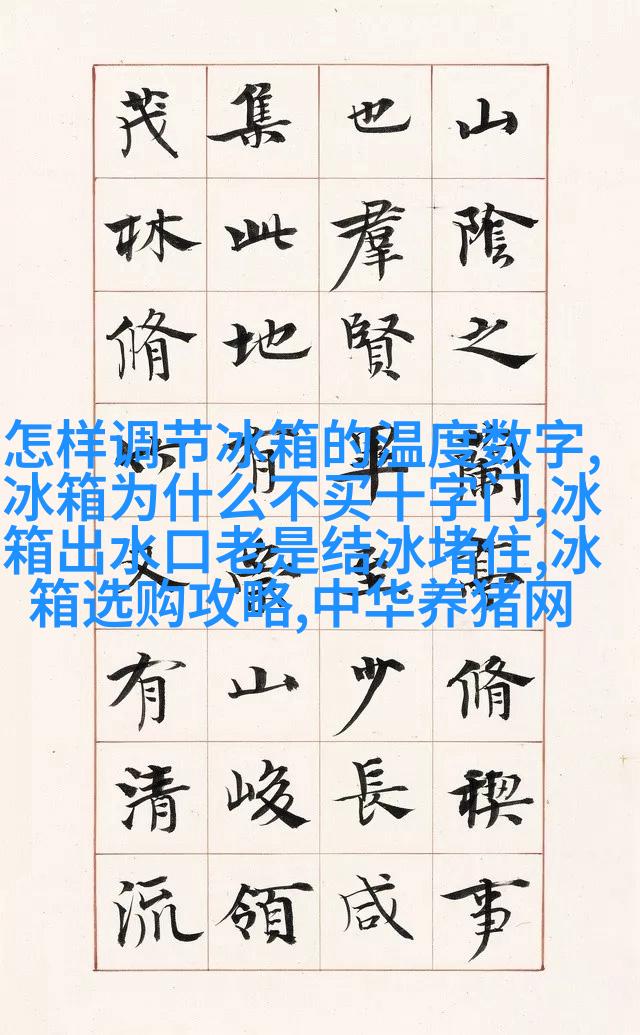 怎样调节冰箱的温度数字,
冰箱为什么不买十字门,冰
箱出水口老是结冰堵住,冰
箱选购攻略,中华养猪网
山陰之蘭亭脩稧事
也羣賢畢至少長咸
集此地有崇山峻領
茂林脩竹又有清流